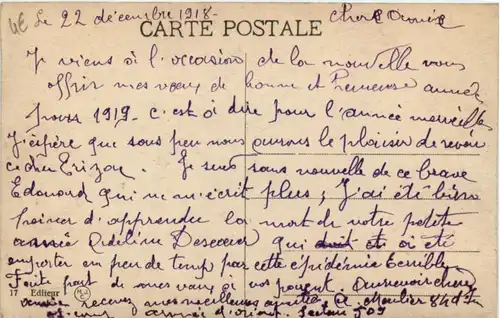 4E Le 22 décembre 1918 - chère Amie
CARTE POSTALE
Je viens à l'occasion de la nouvelle vous
offrir mes vœux de bonne et heureuse année
pour 1919 - c'est à dire pour l'année merveille
J'éspère que sous peu nous aurons le plaisir de revoir
ce cher Je suis sans nouvelle de ce brave
Edouard qui ne m'écrit plus ; J'ai été bien
d'apprendre la mort de votre petite
amie Adeline qui ete
emporter en peu de temps par cette épidémie terrible
Faite part de mes vœux à vos parent. Aurevoir chere
17 Editeur recevez mes meilleures 84
armée d'orient. Secteur 509